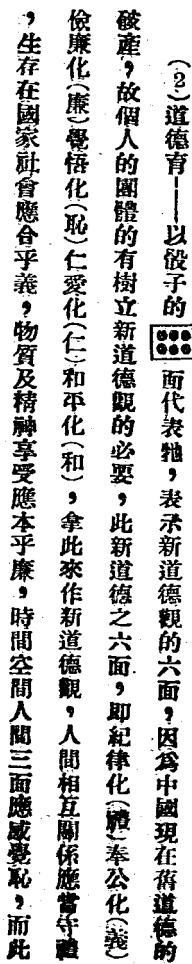 （2）道德育——以骰子的⚅面代表牠，表示新道德觀的六面，因爲中國現在舊道德的
破產，故個人的團體的有樹立新道德觀的必要，此新道德之六面，卽紀律化（禮）奉公化（義）
儉廉化（廉）覺悟化（恥）仁愛化（仁）和平化（和），拿此來作新道德觀，人間相互關係應當守禮
，生存在國家社會應合乎義，物質及精神享受應本乎廉，時間空間人間三面應感覺恥，而此